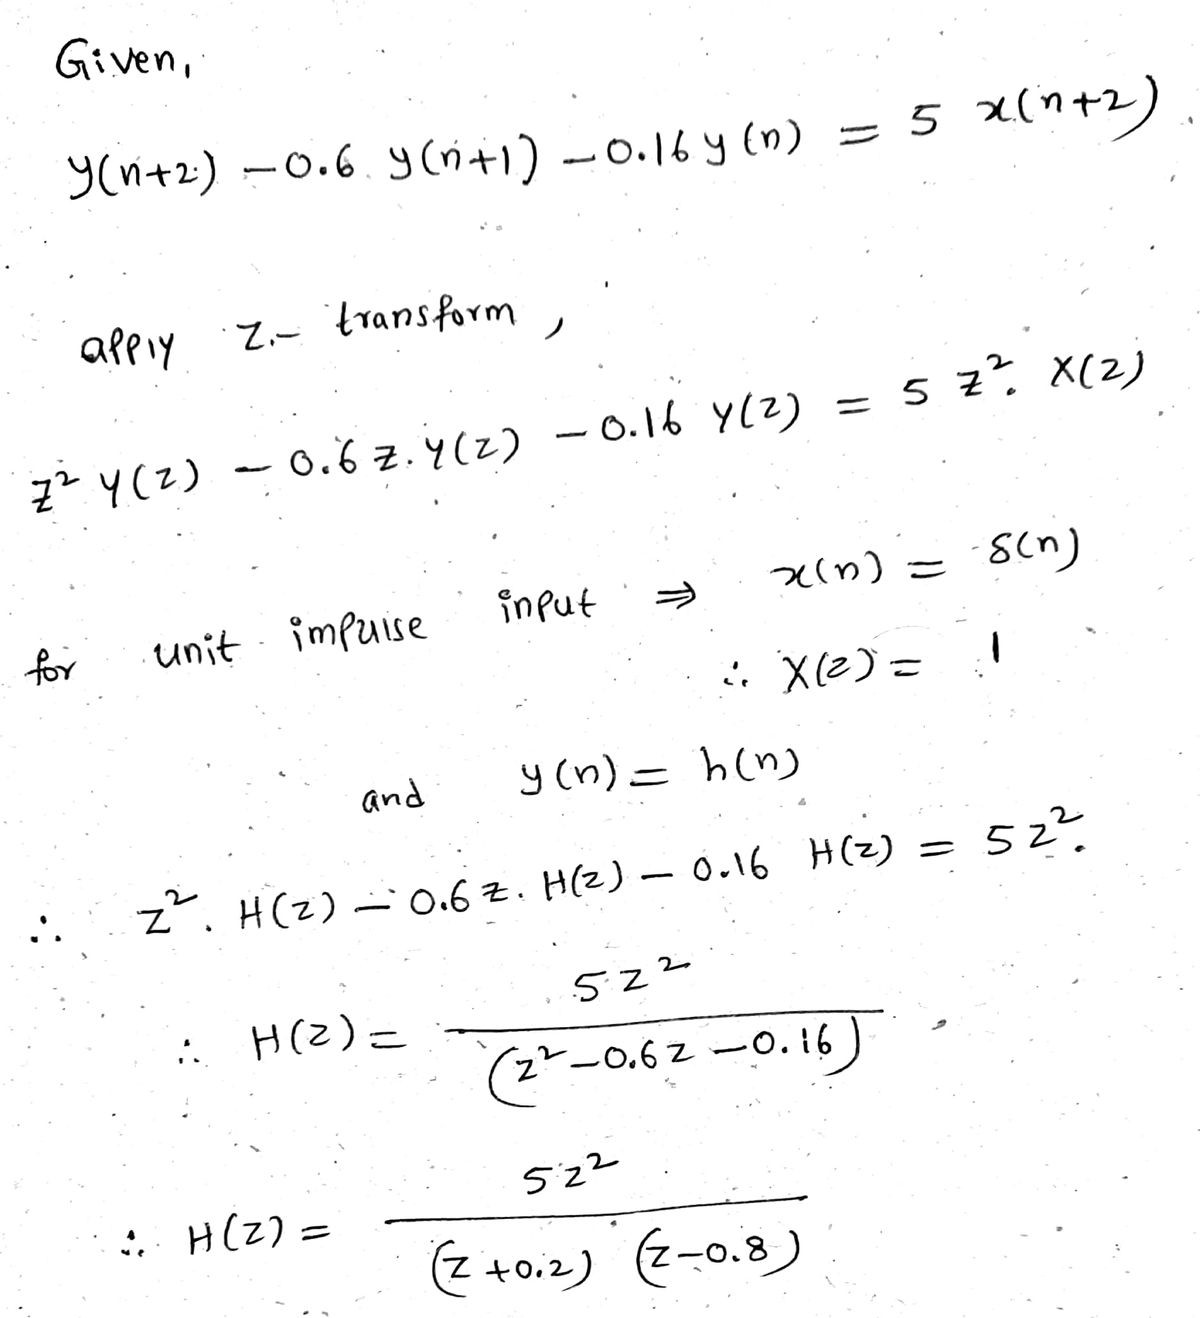 Given,
y(n+2) - 0.6 y(n+1) - 0.16 y(n) = 5 x(n+2).
apply Z- transform,
z² Y(z) - 0.6 z. Y(z) - 0.16 Y(z) = 5 z². X(z)
for unit impulse input ⇒ x(n) = δ(n)
∴ X(z) = 1
and y(n) = h(n)
∴ z². H(z) - 0.6 z. H(z) - 0.16 H(z) = 5 z².
∴ H(z) = 5z² / (z² - 0.6 z - 0.16)
∴ H(z) = 5z² / (z + 0.2) (z - 0.8)